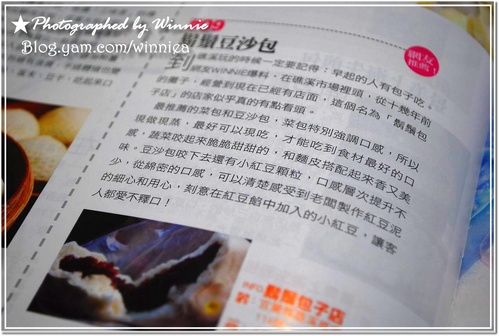 ★ Photographed by Winnie
Blog.yam.com/winniea
網友
推薦!
豆沙包
到礁溪玩的時候一定要記得:早起的人有包子吃,
網友WINNIE爆料,在礁溪市場裡頭,從十幾年前
的攤子,經營到現在已經有店面,這個名為「鬍鬚包
子店」的店家似乎真的有點看頭。
最推薦的菜包和豆沙包,菜包特別強調口感,所以
現做現蒸,最好可以現吃,才能吃到食材最好的口
感,蔬菜咬起來脆脆甜甜的,和麵皮搭配起來香又美
味。豆沙包咬下去還有小紅豆顆粒,口感層次提升不
少,從綿密的口感,可以清楚感受到老闆製作紅豆泥
的細心和用心,刻意在紅豆餡中加入的小紅豆,讓客
人都愛不釋口!
INFO
鬍鬚包子店